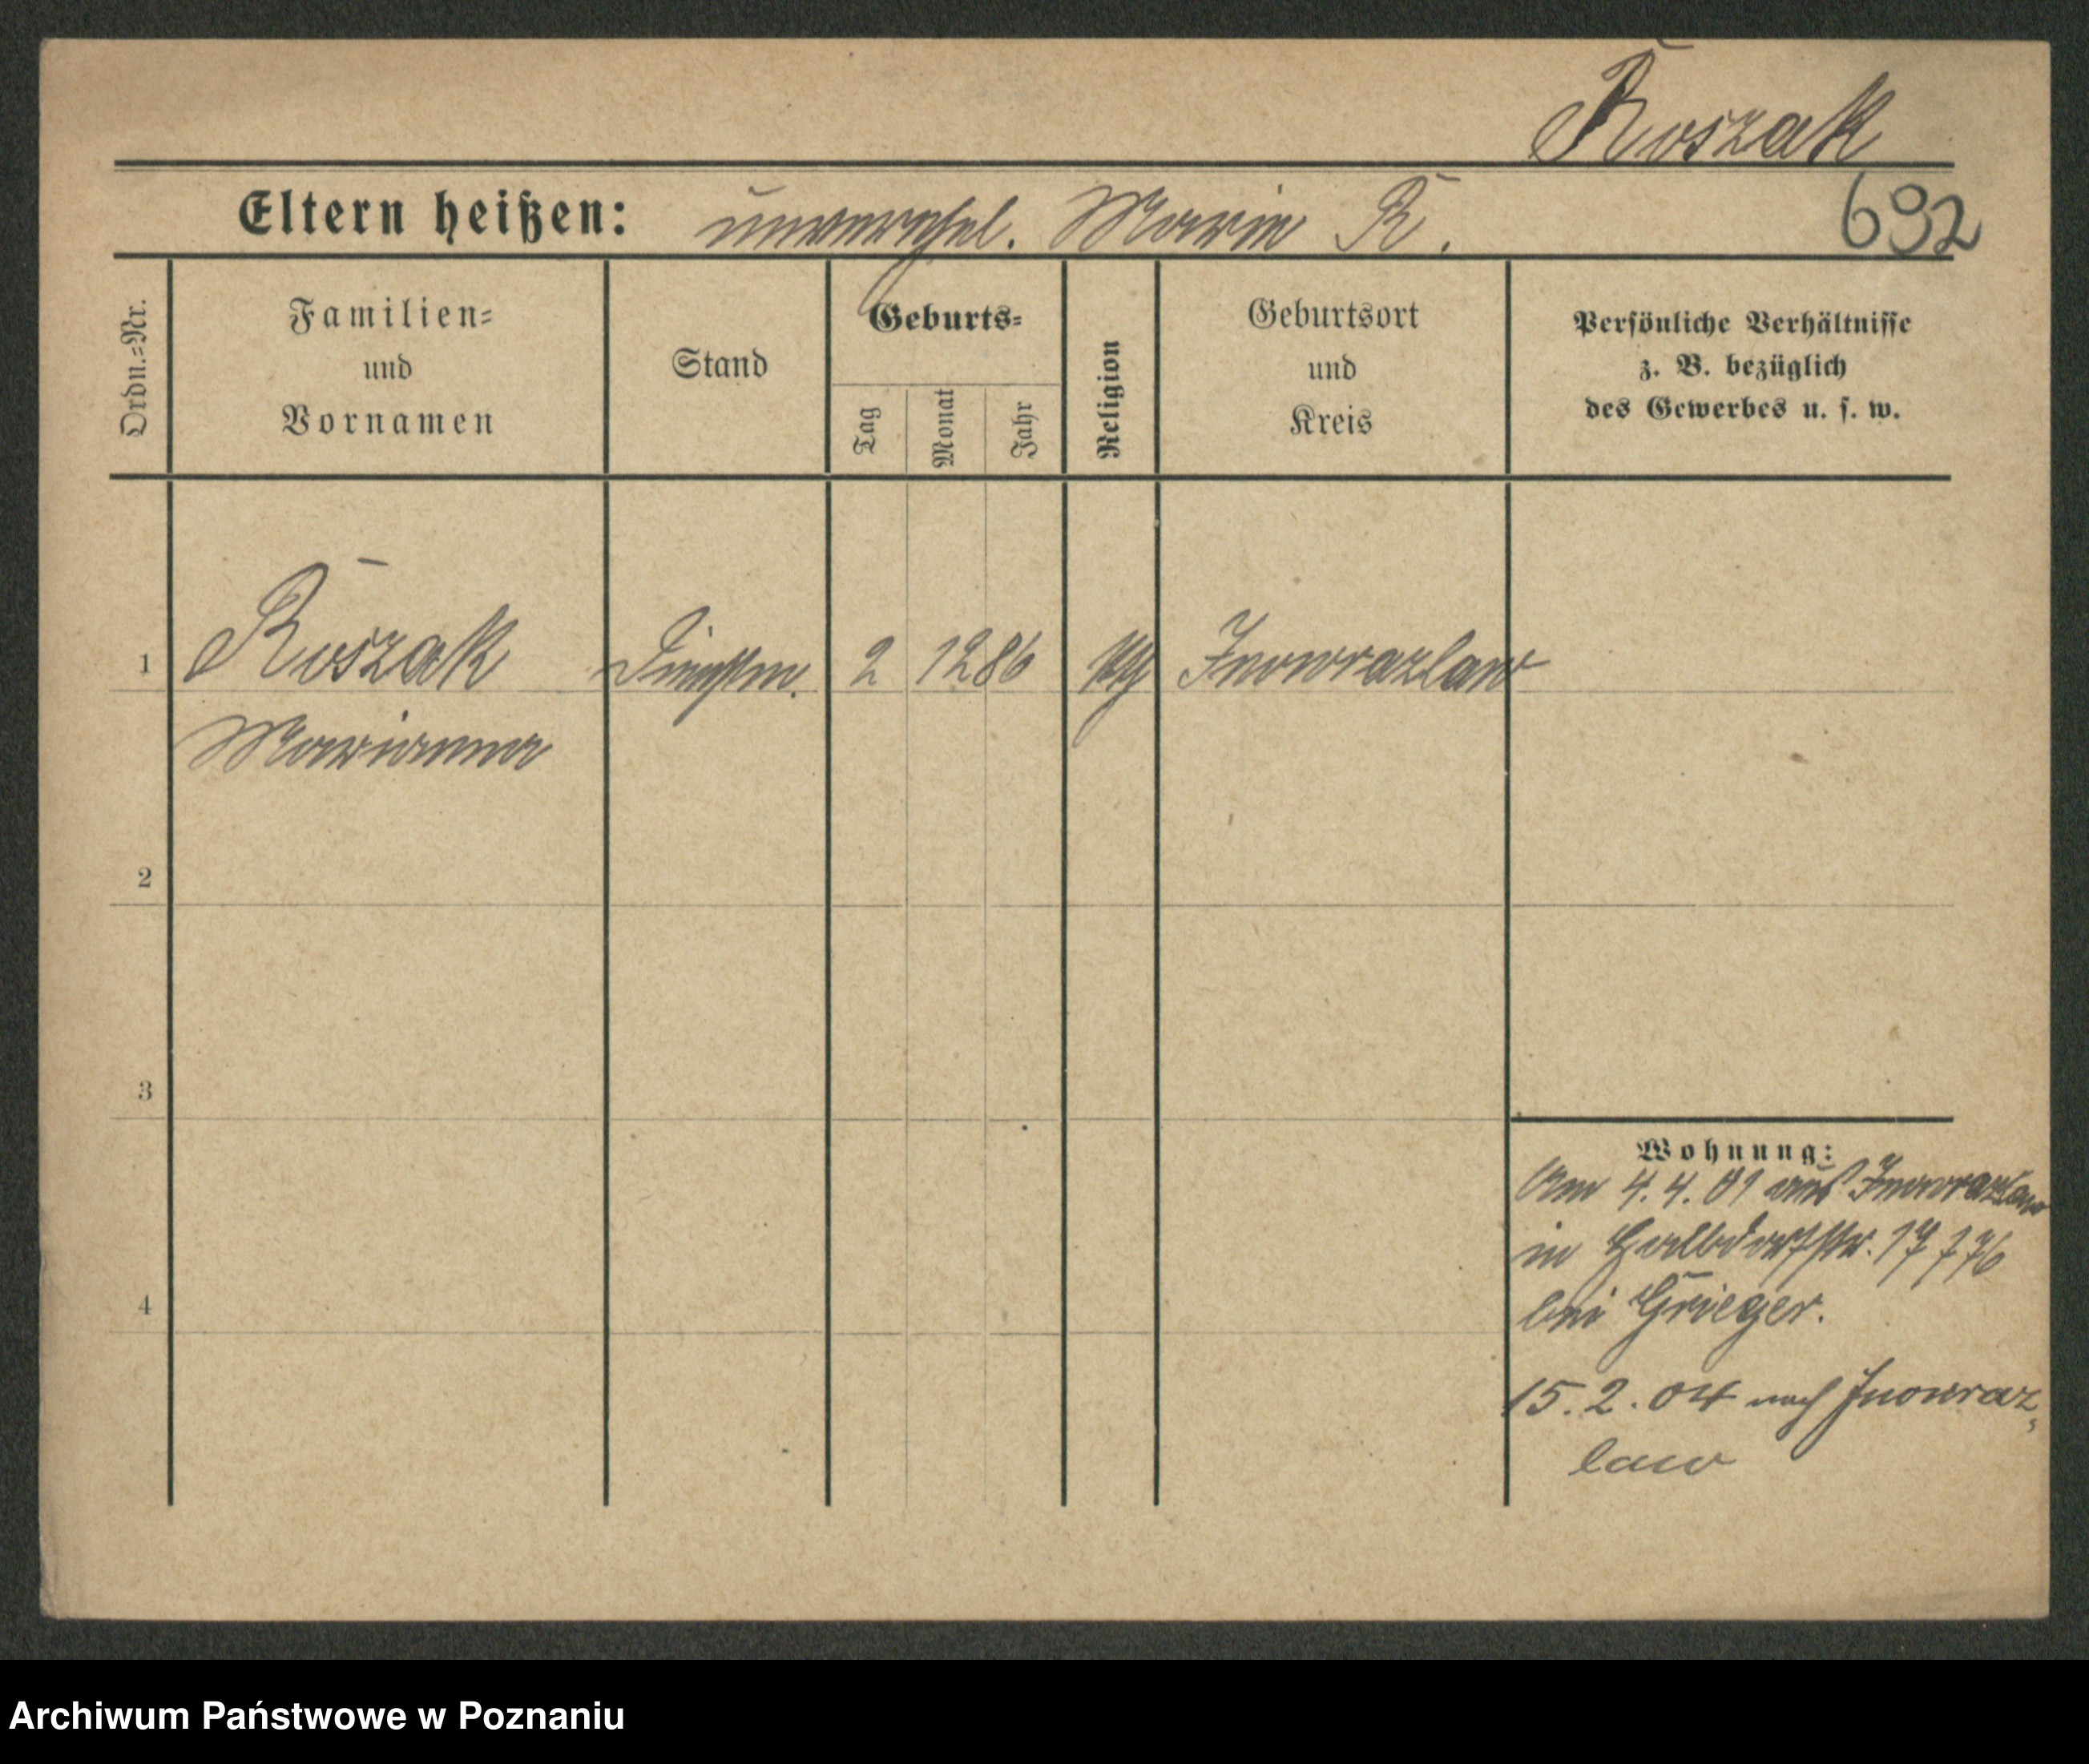 Ruszak
Eltern heißen: unverehel. Marie R.
692
Ordn.=Nr.
Familien=
und
Vornamen
Stand
Geburts=
Tag
Monat
Jahr
Religion
Geburtsort
und
Kreis
Persönliche Verhältnisse
z. B. bezüglich
des Gewerbes u. s. w.
1 Ruszak 2 12 86 Inowrazlaw
Marianna
2
3
4
Wohnung:
Am 4.4.01 aus Inowrazlaw
in Halbdorfstr. 17
bei Grieger.
15.2.04 nach Inowraz=
law
Archiwum Państwowe w Poznaniu